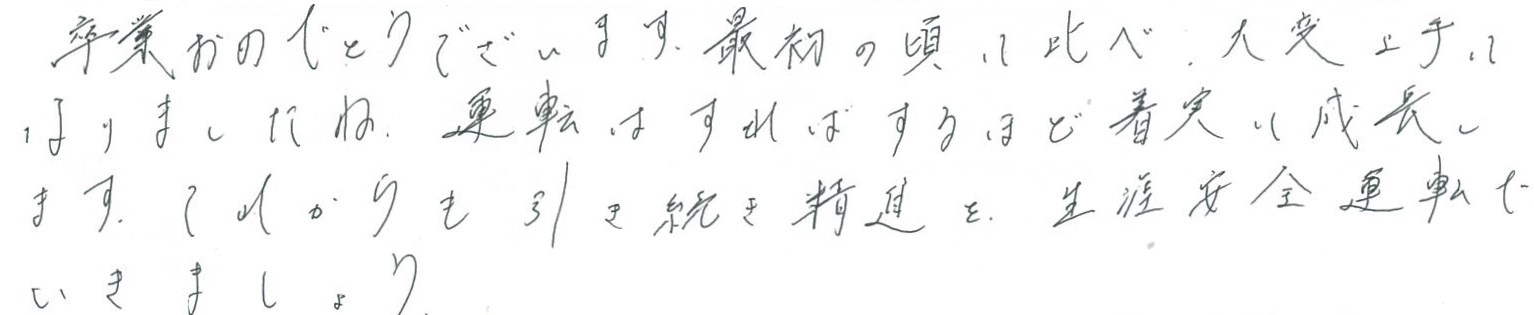 卒業おめでとうございます。最初の頃に比べ、大変上手に
なりましたね。運転はすればするほど着実に成長し
ます。これからも引き続き精進を。生涯安全運転で
いきましょう。